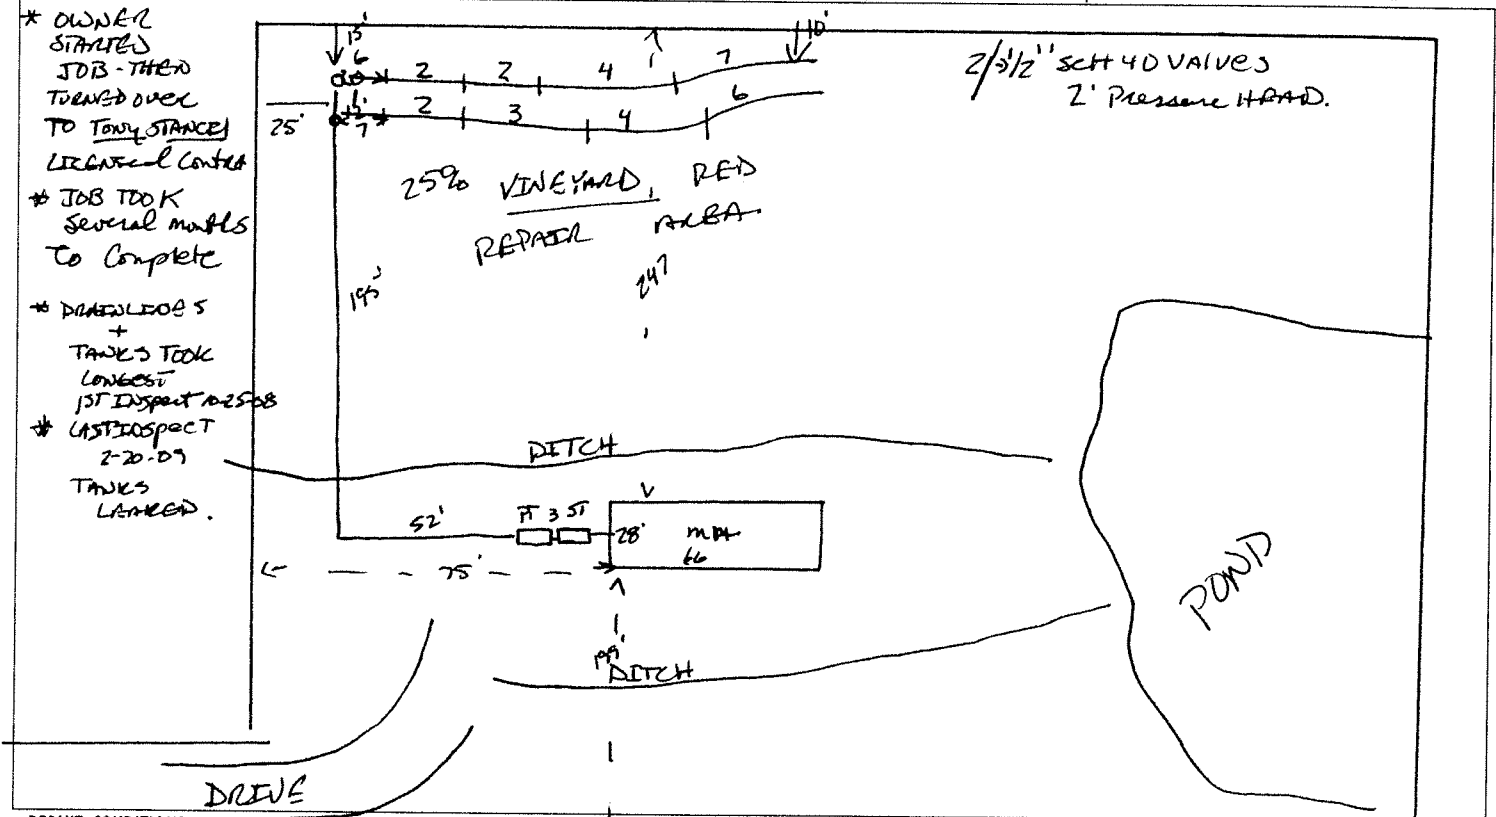 * OWNER
STARTED
JOB - THEN
TURNED OVER
TO TONY STANCEY
LICENSED CONTRA
* JOB TOOK
several months
To Complete
* DRAINLINES
+
TANKS TOOK
LONGEST
1ST INSPECT 10-25-08
* LAST INSPECT
2-20-09
TANKS
LEAKED.
15'
10'
6
2 2 4 7
2/ 1/2" SCH 40 VALVES
2' Pressure HEAD.
25'
7
2 3 4 6
25% VINEYARD, RED
REPAIR AREA
195'
247
DITCH
52'
PT 3 ST
28'
66
75'
199'
DITCH
POND
DRIVE